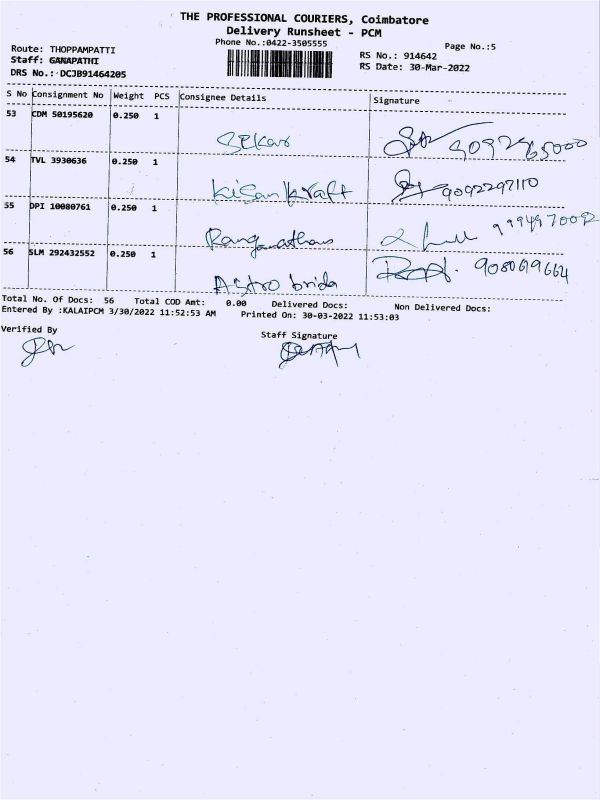 THE PROFESSIONAL COURIERS, Coimbatore
Delivery Runsheet - PCM
Phone No.:0422-3505555
Page No.:5
Route: THOPPAMPATTI
Staff: GANAPATHI
DRS No.: DCJB91464205
RS No.: 914642
RS Date: 30-Mar-2022
S No Consignment No Weight PCS Consignee Details Signature
53 CDM 50195620 0.250 1
Sekar
54 TVL 3930636 0.250 1
Kisan Kraft 9092297110
55 DPI 10080761 0.250 1
Ranganathan
56 SLM 292432552 0.250 1
Astro brida 9080619664
Total No. Of Docs: 56 Total COD Amt: 0.00 Delivered Docs: Non Delivered Docs:
Entered By :KALAIPCM 3/30/2022 11:52:53 AM Printed On: 30-03-2022 11:53:03
Verified By
Staff Signature